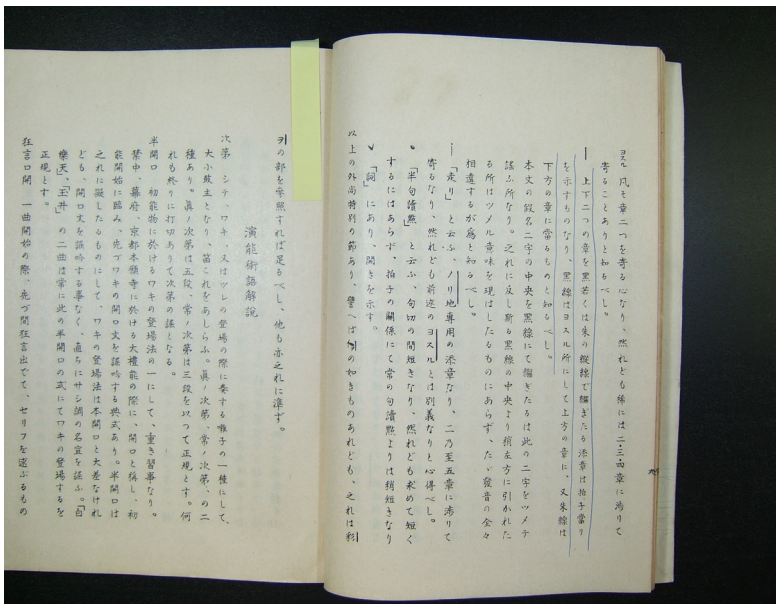 ヨスル 凡そ章二つを寄る心なり、然れども稀には二・三・四章に渉りて
寄ることありと知るべし。
｜ 上下二つの章を黒若くは朱の縦線で継ぎたる添章は拍子當り
を示すものなり、黒線はヨスル所にして上方の章に、又朱線は
下方の章に當るものと知るべし。
本文の假名二字の中央を黒線にて継ぎたるは此の二字をツメテ
謡ふ所なり。之れに反し斯る黒線の中央より稍左方に引かれた
る所はツメル意味を現はしたるものにあらず、たゞ發音の全々
相違するが為と知るべし。
「走り」と云ふ、ノリ地専用の添章なり、二乃至五章に渉りて
寄るなり、然れども前述のヨスルとは別義なりと心得べし。
「半句讀點」と云ふ、句切の間短きなり、然れども求めて短く
するにはあらず、拍子の關係にて常の句讀點よりは稍短きなり
「詞」にあり、開きを示す。
以上の外尚特別の節あり、譬へば の如きものあれども、之れは彩
の部を參照すれば足るべし、他も亦之れに準ず。
演能術語解説
次第 シテ、ワキ、又はツレの登場の際に奏する囃子の一種にして、
大小鼓主となり、笛これをあしらふ。眞ノ次第、常ノ次第、の二
種あり。眞ノ次第は五段、常ノ次第は三段を以つて正規とす。何
れも終りに打切ありて次第の謡となる。
半開口 初能物に於けるワキの登場法の一にして、重き習事なり。
禁中、幕府、京都本願寺に於ける大禮能の際に、開口と稱し、初
能開始に臨み、先づワキの開口文を謡吟する典式あり。半開口は
之れに擬したるものにして、ワキの登場法は本開口と大差なけれ
ども、開口文を謡吟する事なく、直ちにサシ調の名宣を謡ふ。「白
樂天」、「玉井」の二曲は常に此の半開口の式にてワキの登場するを
正規とす。
狂言口開 一曲開始の際、先づ間狂言出でて、セリフを述ぶるもの